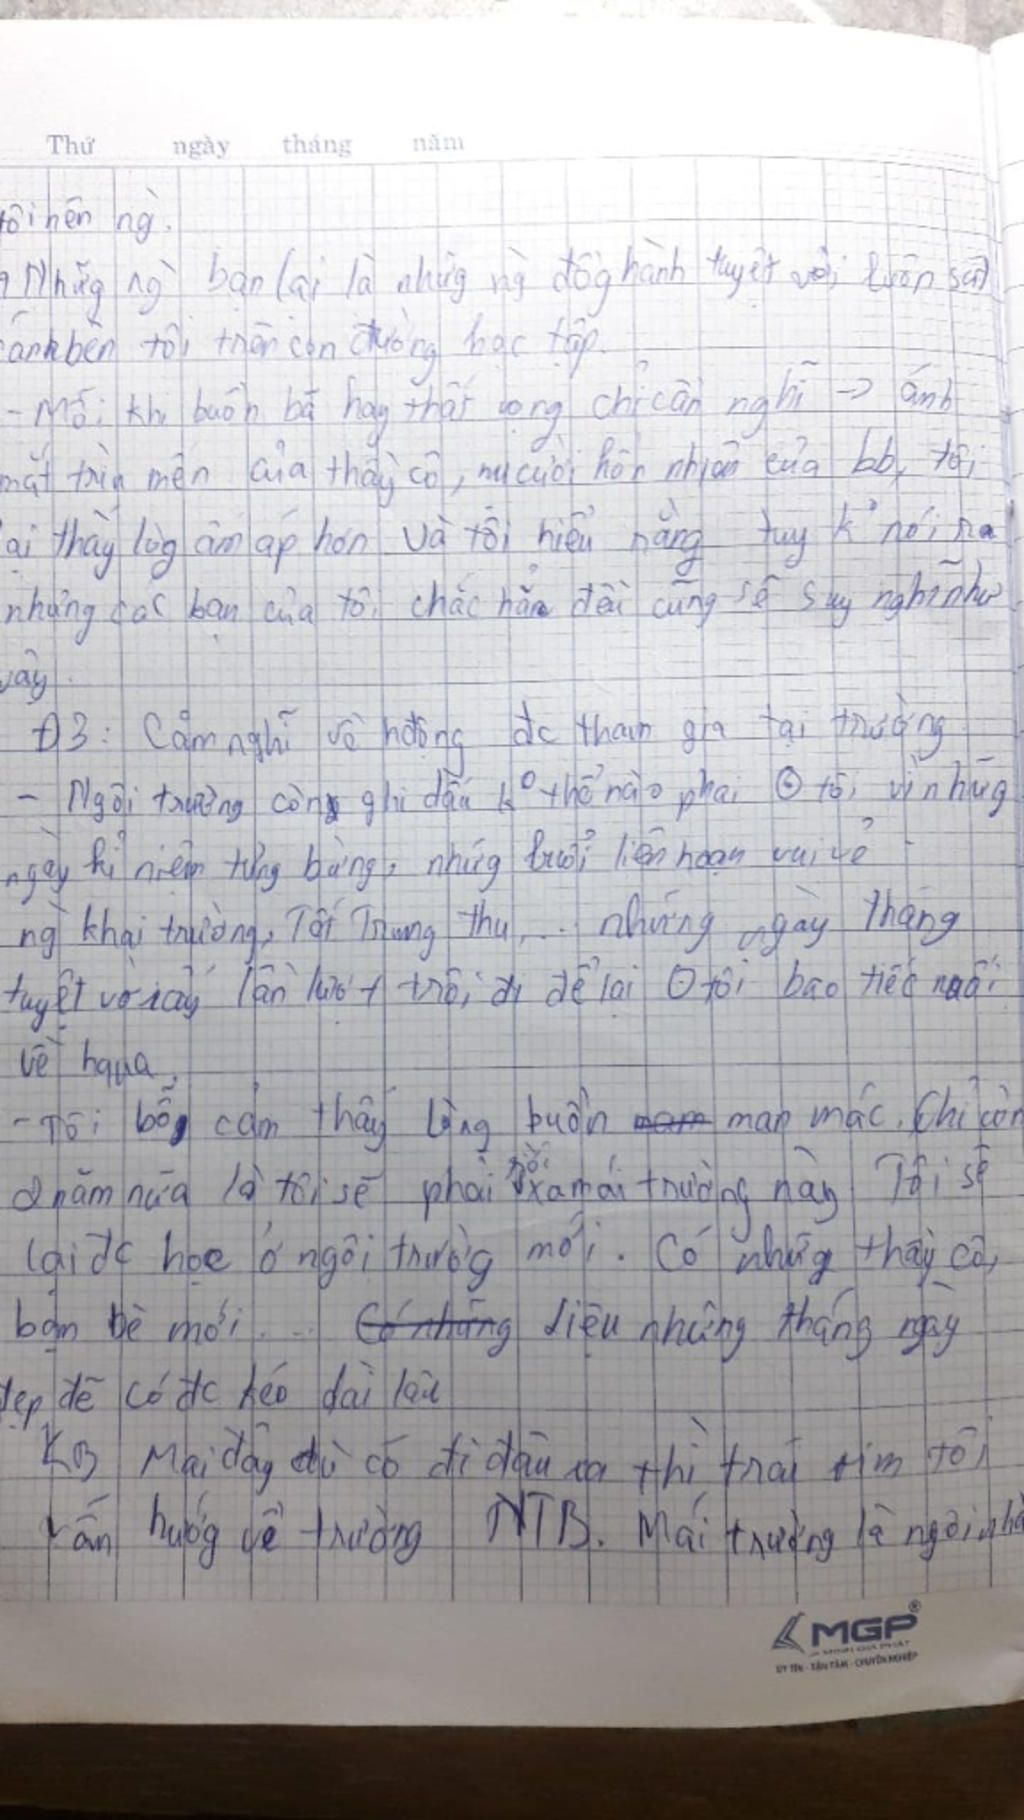 Thứ ngày tháng năm
tôi nên ng`.
Nhữg ng` bạn lại là nhữg ng` đồg hành tuyệt vời luôn sát
cánh bên tôi trên con đường học tập.
- Mỗi khi buồn bã hay thất vọng chỉ cần nghĩ -> ánh
mắt trìu mến của thầy cô, nụ cười hồn nhiên của bb, tôi
lại thấy lòg ấm áp hơn và tôi hiểu rằng tuy k° nói ra
nhưng các bạn của tôi chắc hẳn đều cũng sẽ suy nghĩ như
vậy.
Đ3: Cảm nghĩ về hđộng đc tham gia tại trường
- Ngôi trường còn ghi dấu k° thể nào phai ⊙ tôi vì nhữg
ngày kỉ niệm tưng bừng, nhữg buổi liên hoan vui vẻ
ng` khai trường, Tết Trung thu, ... những ngày tháng
tuyệt vời ấy lần lượt trôi đi để lại ⊙ tôi bao tiếc nuối
về hqua.
- Tôi bỗg cảm thấy lòng buồn man mác. Chỉ còn
2 năm nữa là tôi sẽ phải rời xa mái trường này Tôi sẽ
lại đc học ở ngôi trườg mới. Có nhữg thầy cô,
bạn bè mới ... liệu những tháng ngày
đẹp đẽ có đc kéo dài lâu
KB Mai đây dù có đi đâu xa thì trái tim tôi
vẫn hướg về trường NTB. Mái trường là ngôi nhà
MGP®
MINH GIA PHÁT
UY TÍN - TẬN TÂM - CHUYÊN NGHIỆP